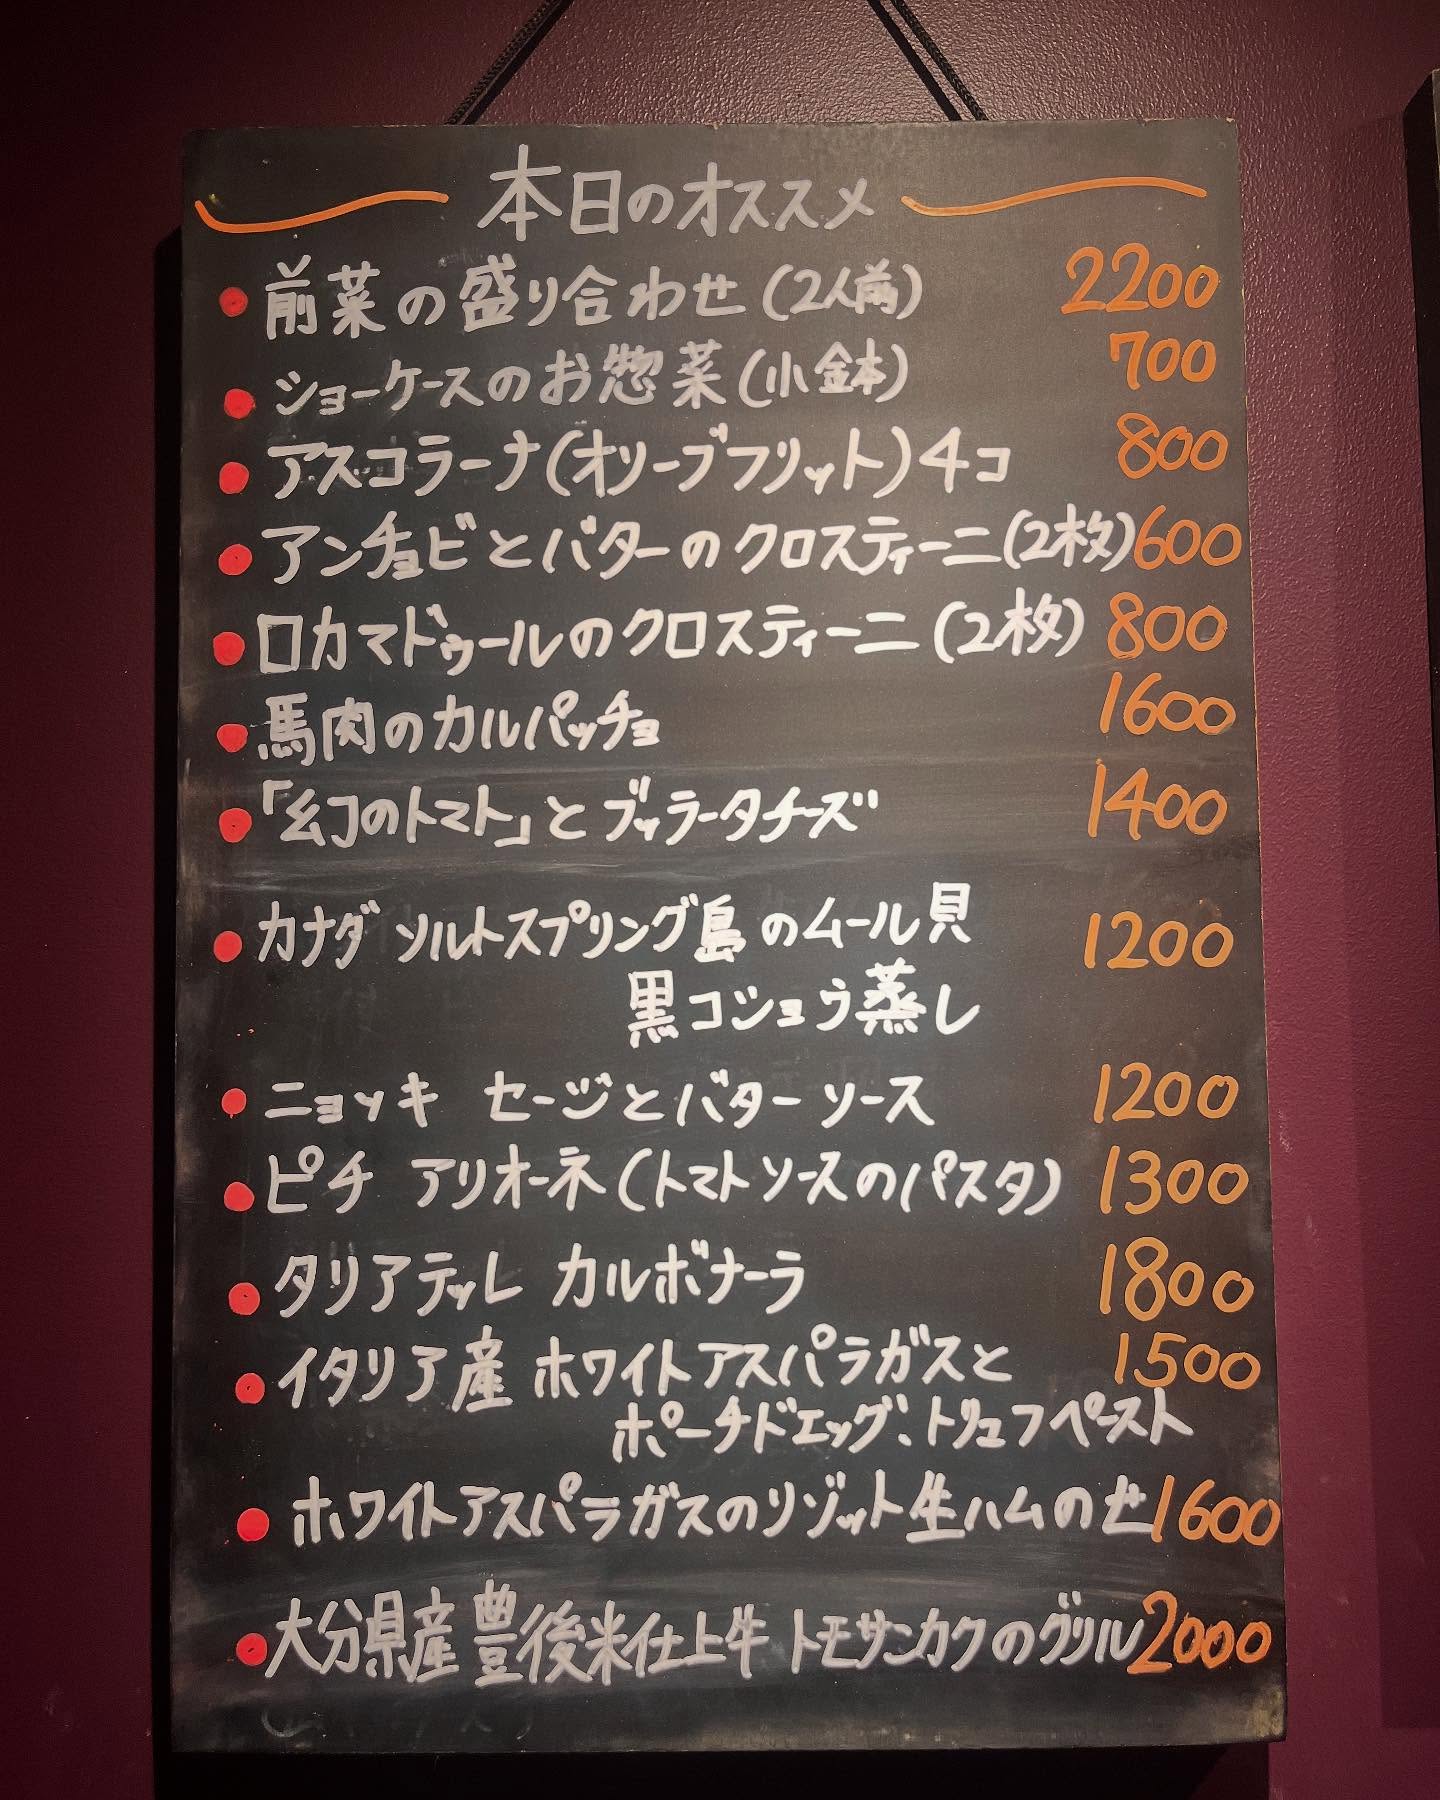 本日のオススメ
前菜の盛り合わせ(2人前) 2200
ショーケースのお惣菜(小鉢) 700
アスコラーナ(オリーブフリット)4コ 800
アンチョビとバターのクロスティーニ(2枚) 600
ロカマドゥールのクロスティーニ(2枚) 800
馬肉のカルパッチョ 1600
「幻のトマト」とブッラータチーズ 1400
カナダ ソルトスプリング島のムール貝 1200
黒コショウ蒸し
ニョッキ セージとバターソース 1200
ピチ アリオーネ(トマトソースのパスタ) 1300
タリアテッレ カルボナーラ 1800
イタリア産 ホワイトアスパラガスと 1500
ポーチドエッグ、トリュフペースト
ホワイトアスパラガスのリゾット生ハムのせ 1600
大分県産豊後米仕上牛 トモサンカクのグリル 2000